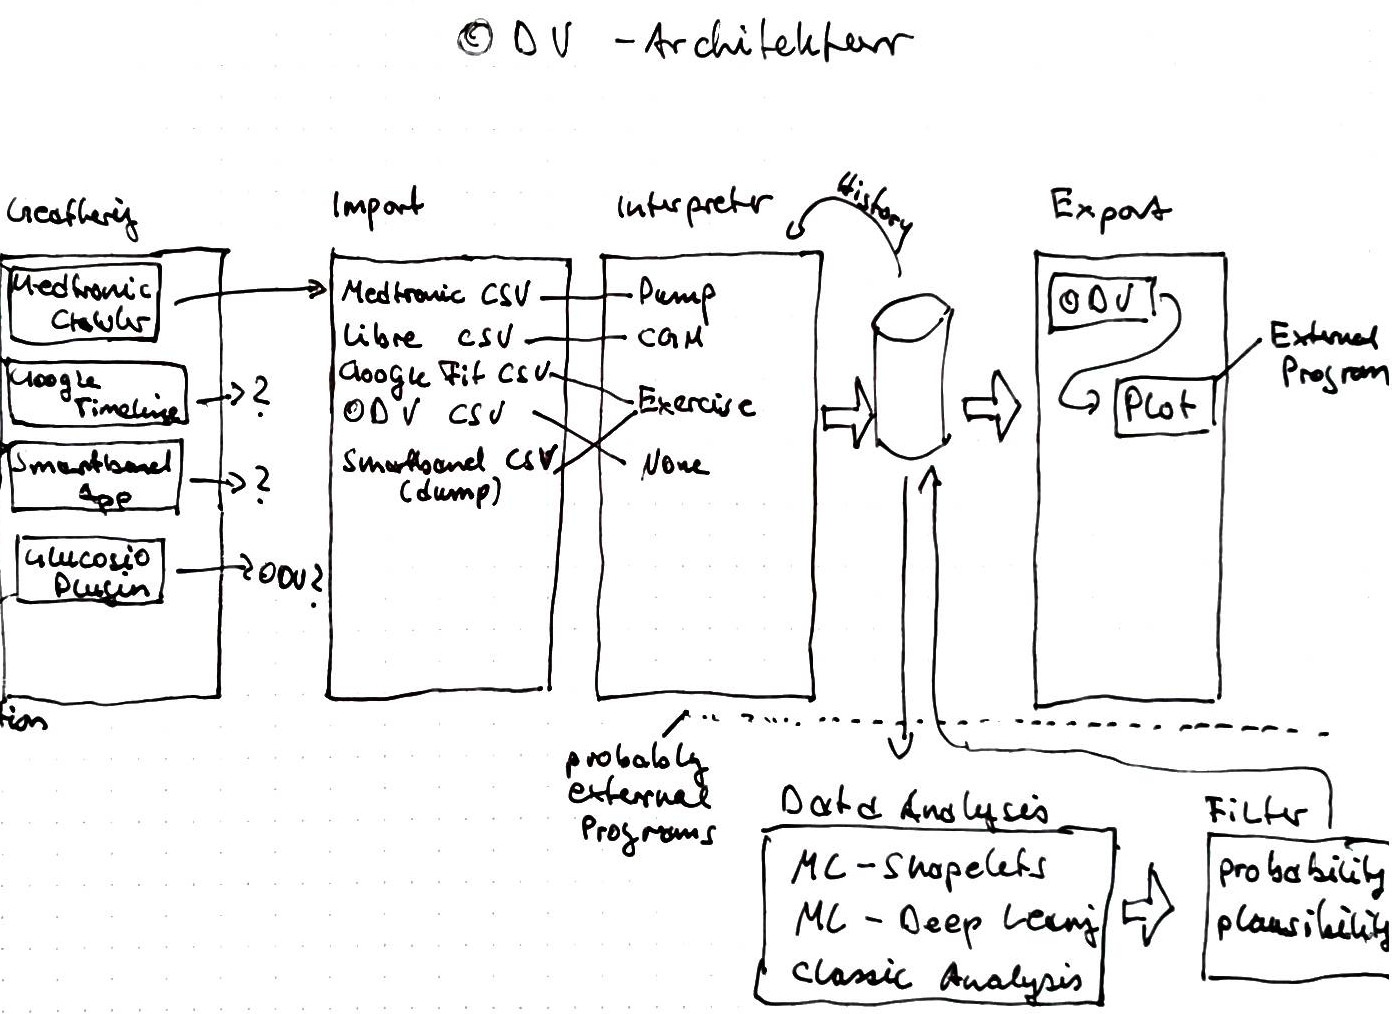 ODV - Architektur
Geathering
Import
Interpreter
History
Export
Medtronic
Crawler
Google
Timeline
?
Smartband
App
?
Glucosio
Plugin
?ODV?
tion
Medtronic CSV
Libre CSV
Google Fit CSV
ODV CSV
Smartband CSV
(dump)
Pump
CGM
Exercise
None
ODV
Plot
External
Program
probably
external
Programs
Data Analysis
ML - Shapelets
ML - Deep Learnig
Classic Analysis
Filter
probability
plausibility